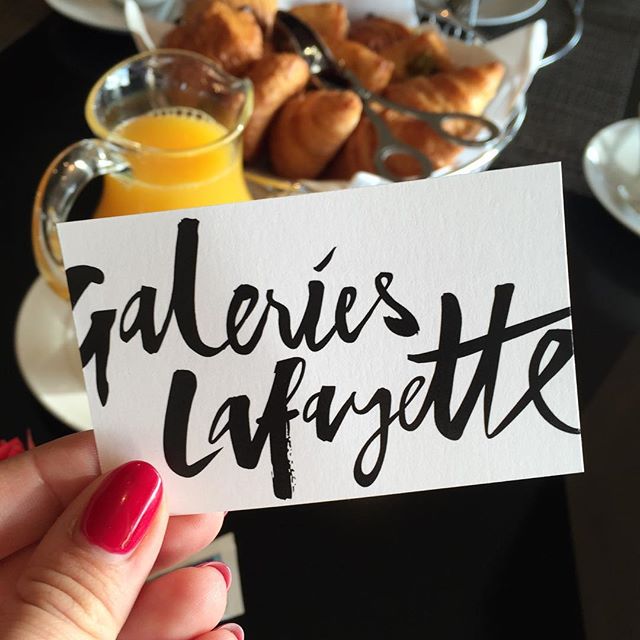 Galeries
Lafayette